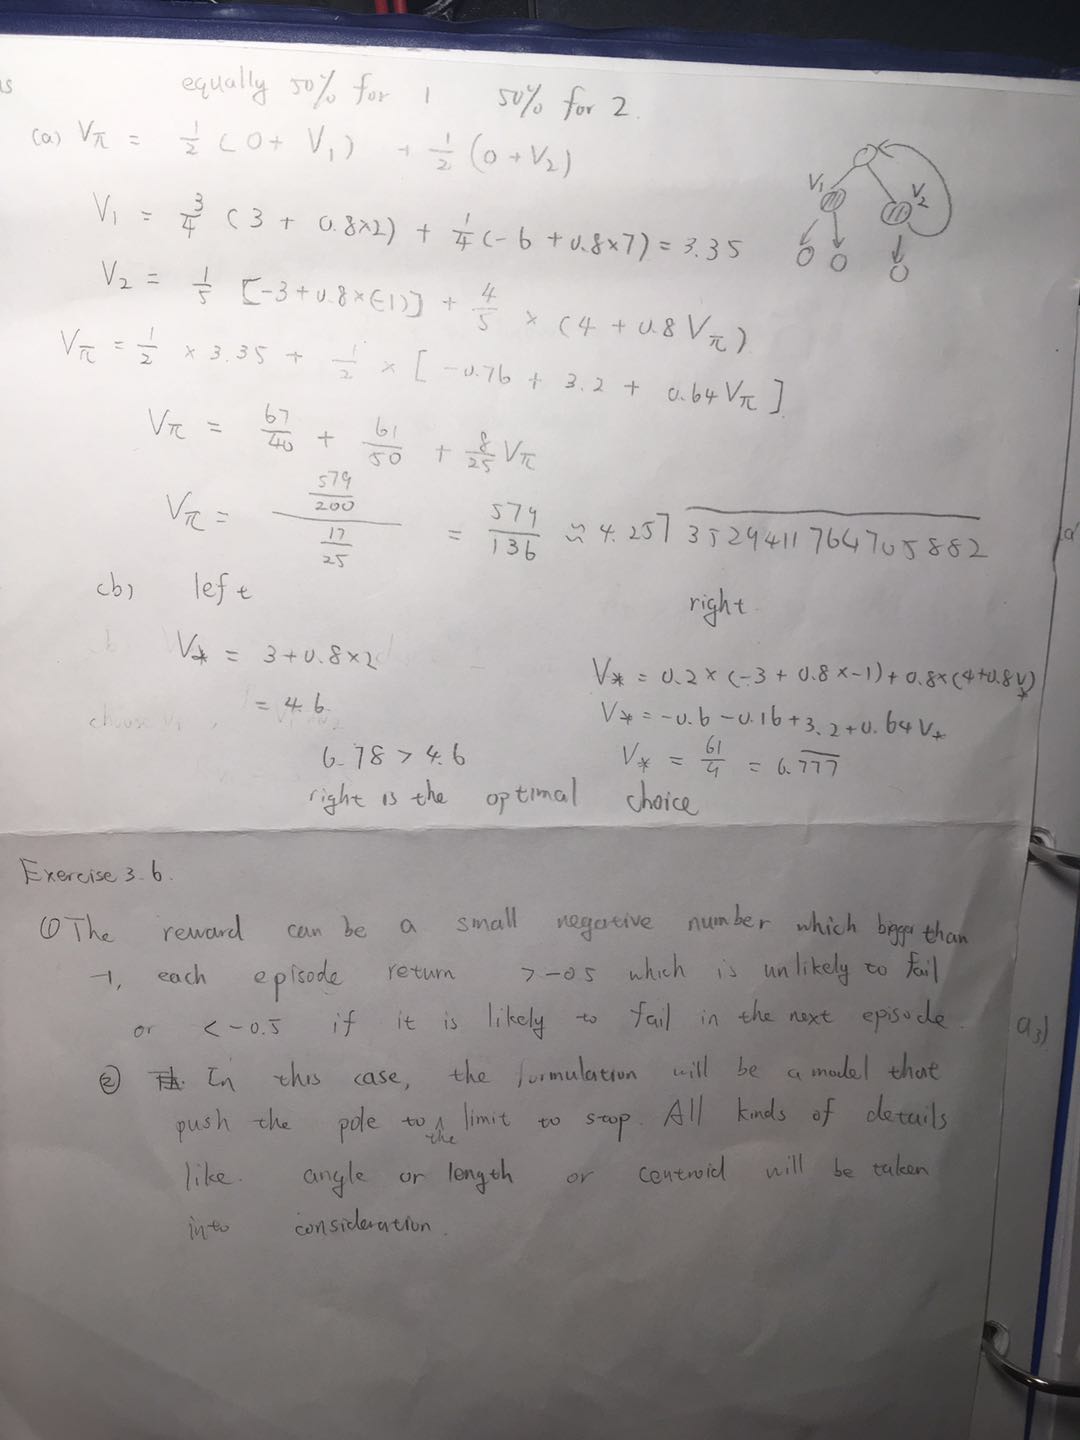 equally 50% for 1 50% for 2.
(a) Vπ = 1/2 (0 + V1) + 1/2 (0 + V2)
V1 V2
V1 = 3/4 (3 + 0.8×2) + 1/4 (-6 + 0.8×7) = 3.35
V2 = 1/5 [-3+0.8×(-1)] + 4/5 × (4 + 0.8 Vπ)
Vπ = 1/2 × 3.35 + 1/2 × [-0.76 + 3.2 + 0.64 Vπ]
Vπ = 67/40 + 61/50 + 8/25 Vπ
Vπ = (579/200)/(17/25) = 579/136 ≈ 4.257 3529411764705882
(b) left right
V* = 3+0.8×2
= 4.6
V* = 0.2×(-3 + 0.8×-1)+0.8×(4+0.8V*)
V* = -0.6-0.16+3.2+0.64V*
V* = 61/9 = 6.777
6.78 > 4.6
right is the optimal choice
Exercise 3.6.
① The reward can be a small negative number which bigger than
-1, each episode return >-0.5 which is unlikely to fail
or <-0.5 if it is likely to fail in the next episode.
② In this case, the formulation will be a model that
push the pole to the limit to stop. All kinds of details
like angle or length or centroid will be taken
into consideration.